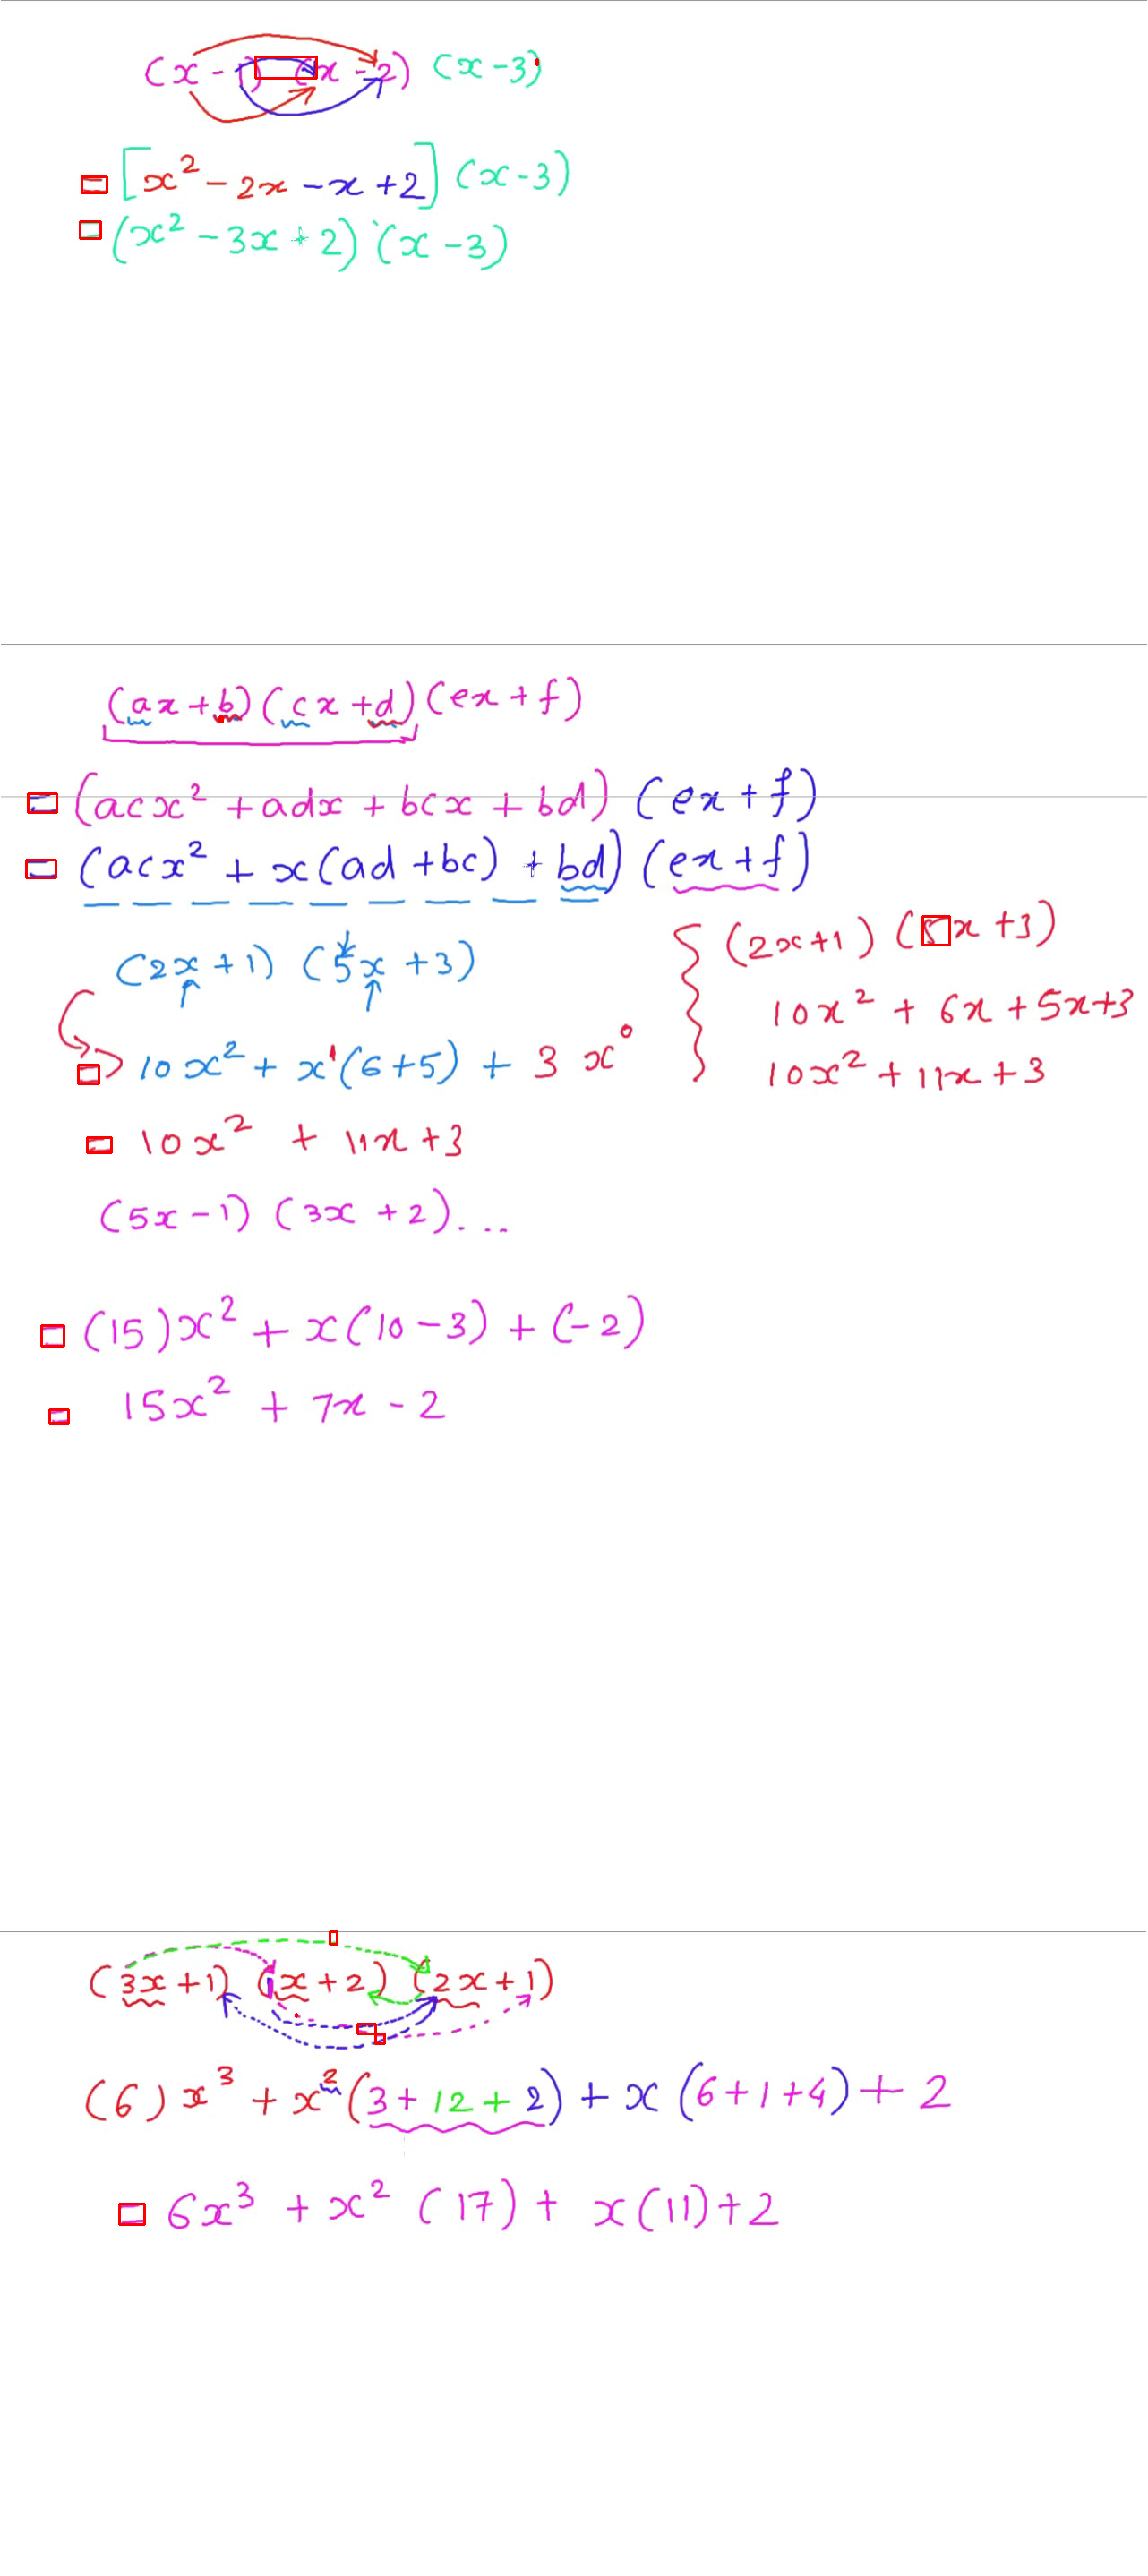 (x - 1) (x - 2) (x - 3)
= [x² - 2x - x + 2] (x - 3)
= (x² - 3x + 2) (x - 3)
(ax + b) (cx + d) (ex + f)
= (acx² + adx + bcx + bd) (ex + f)
= (acx² + x(ad + bc) + bd) (ex + f)
(2x + 1) (5x + 3)
= 10x² + x¹(6 + 5) + 3x⁰
= 10x² + 11x + 3
(2x + 1) (5x + 3)
10x² + 6x + 5x + 3
10x² + 11x + 3
(5x - 1) (3x + 2)...
= (15)x² + x(10 - 3) + (-2)
= 15x² + 7x - 2
(3x + 1) (x + 2) (2x + 1)
(6)x³ + x²(3 + 12 + 2) + x(6 + 1 + 4) + 2
= 6x³ + x²(17) + x(11) + 2